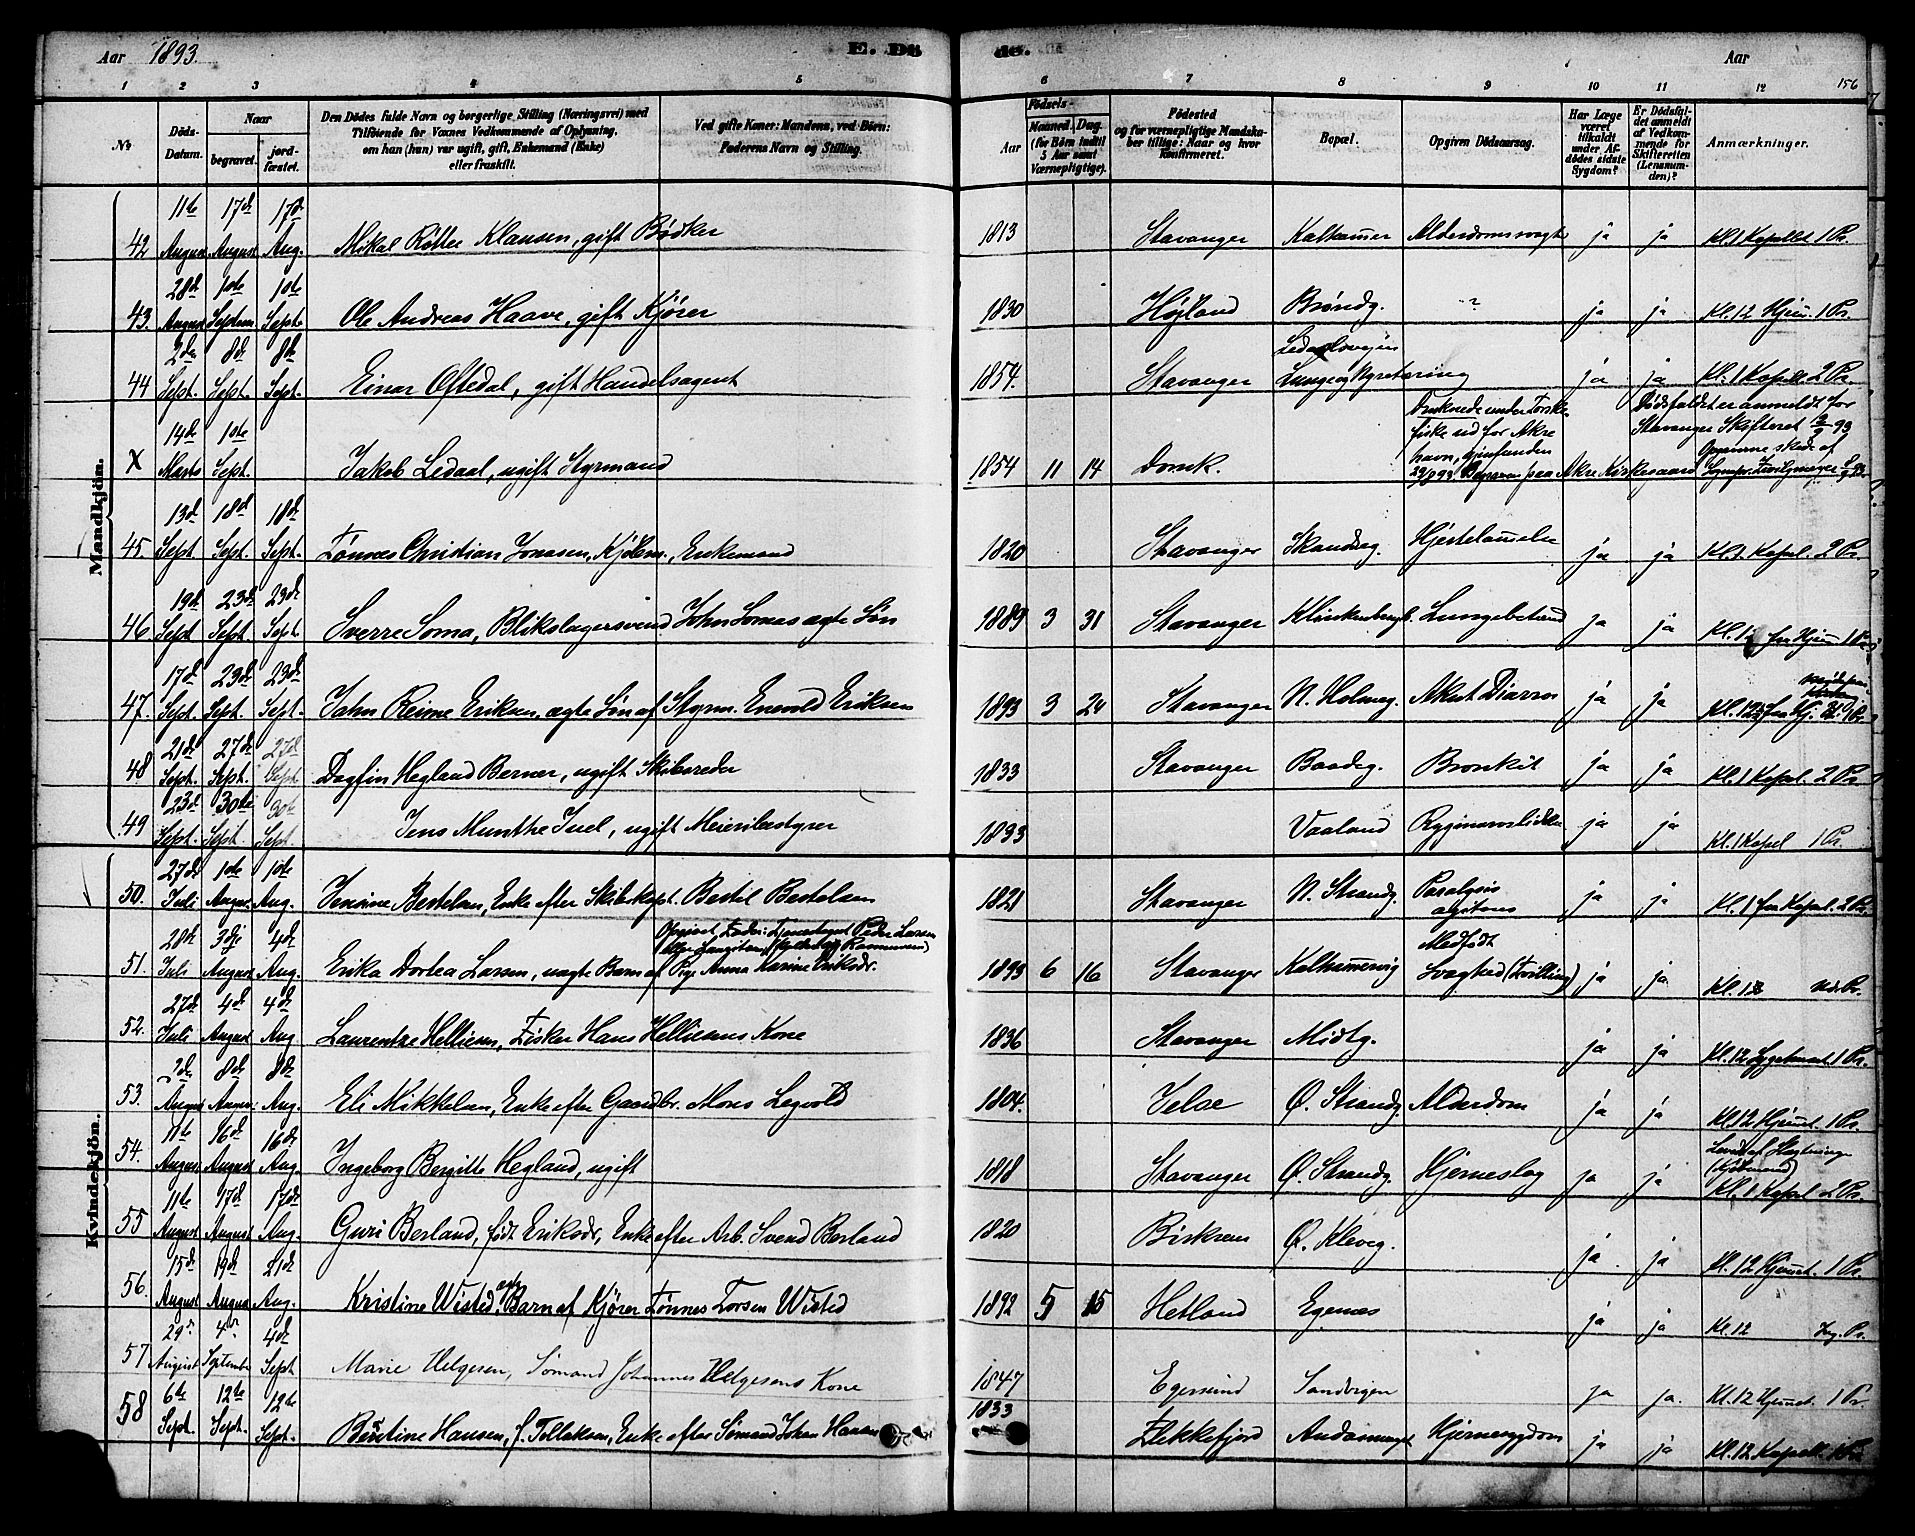 Aar 1893. E. Dø de. Aar 156
1 2 3 4 5 6 7 8 9 10 11 12
No
Døds-Datum.
Naar
begravet.
jordfæstet.
Den Dødes fulde Navn og borgerlige Stilling (Næringsvei) med Tilføiende for Voxnes Vedkommende af Oplysning, om han (hun) var ugift, gift, Enkemand (Enke) eller fraskilt.
Ved gifte Koner: Mandens, ved Børn: Faderens Navn og Stilling.
Fødsels-
Aar
Maaned. Dag.
(for Børn indtil 5 Aar samt Værnepligtige).
Fødested og for værnepligtige Mandskaber tillige: Naar og hvor konfirmeret.
Bopæl.
Opgiven Dødsaarsag.
Har Læge været tilkaldt under Afdødes sidste Sygdom?
Er Dødsfaldet anmeldt af Vedkommende for Skifteretten (Lensmanden)?
Anmærkninger.
Mandkjøn.
42 11te August 17de August 17de Aug. Mikal Røttee Klausen, gift Bødker 1813 Stavanger Kalhamer Alderdomssvagh ja ja Kl. 1 Kapellet 1 Pr.
43. 28de August 10de Septem 10de Sept. Ole Andreas Haave, gift Kjører 1830 Høiland Brøndg. ? ja ja Kl. 12 Hjem. 1 Pr.
44 2den Sept. 8de Sept. 8de Sept. Einar Oftedal, gift Handelsagent 1854. Stavanger Ledaalsveien Lunge og Nyretæring ja ja Kl. 1 Kapell. 2 Pr.
X 14de Marts 10de Sept. Jakob Ledaal, ugift Styrmand 1854 11 14 Domk. Druknede under Torskefiske ud for Akrehavn, gjenfunden 29/8 93. Begraven paa Akre Kirkegaard Dødsfaldet er anmeldt for Stavanger Skifteret 2/9 93
45. 13de Sept. 18de Sept. 18de Sept. Tønnes Christian Jonasen, Kjøbm., Enkemand 1820 Stavanger Skandseg. Hjertelammelse ja ja Kl. 1. Kapel. 2 Pr.
46 19de Sept. 23de Sept. 23de Sept. Sverre Soma, Blikslagersvend John Somas ægte Søn 1889 3 31 Stavanger Klinkenbergb. Lungebetænd ja ja Kl. 12 fra Hjem 1 Pr.
47. 17de Sept. 23de Sept. 23de Sept. Jahn Reime Eriksen, ægte Søn af Styrm. Enevold Eriksen 1893 3 24 Stavanger N. Holmeg. Akut Diarroe ja ja
48 21de Sept. 27de Sept. 27de Sept. Dagfin Hegland Berner, ugift Skibsreder 1833 Stavanger Baadeg. Bronkit ja ja Kl. 1 Kapel. 2 Pr
49 23de Sept. 30te Sept. 30te Sept. Jens Munthe Juel, ugift Meieribestyrer 1833 Vaaland Rygmarvslidelse ja ja Kl. 1 Kapel 1 Pr.
Kvindekjøn.
50. 27de Juli 1ste August 1ste Aug. Jensine Bertelsen, Enke efter Skibskapt. Bertil Bertelsen 1821 Stavanger N. Strandg. Paralysis agitans ja ja Kl. 1 fra Kapel. 2 Pr.
51. 28de Juli 3die August 4de Aug. Erika Dortea Larsen, uægte Barn af Pige Anna Karine Eriksdr. Opgivet Fader: Tjenestegut Peder Larsen 1893 6 16 Stavanger Kalhamervig Medfødt Svaghed (Tvilling) ja ja. Kl. 12 u. Pr.
52. 27de Juli 4de August 4de Aug. Laurentze Helliesen, Fisker Hans Helliesens Kone 1836 Stavanger Midtg. ja ja Kl. 12 1 Pr.
53. 2den August 8de August 8de Aug. Eli Mikkelsen, Enke efter Gaardbr. Mons Legvold 1804. Jelse Ø. Strandg Alderdom ja ja Kl. 12 Hjemt. 1 Pr.
54. 11te August 16de August 16de Aug. Ingeborg Bergitte Hegland, ugift 1818 Stavanger Ø. Strandg. Hjerneslag ja ja Levet af Slægtninge (Kjøbmænd) Kl. 1 Kapel 2 Pr.
55 11te August 17de August 17de Aug. Guri Berland, født Eriksdr, Enke efter Arb. Svend Berland 1820 Birkrem Ø. Kleveg. ja ja Kl. 12 Hjemmet. 1 Pr.
56. 15de August 19de August 21de Aug. Kristine Wisted, ægte Barn af Kjører Tønnes Torsen Wisted 1892 5 15 Hetland Egenæs ja ja Kl. 12 Pr.
57 29de August 4de September 4de Sept Marie Helgesen, Sømand Johannes Helgesens Kone 1847 Egersund Sandvigen ja ja. Kl. 12 Hjemmet 1 Pr
58 6te Sept. 12te Sept. 12te Sept. Bertine Hansen, f. Tollaksen, Enke efter Sømand Johan Hansen 1833 Flekkefjord Hjernesygdom ja ja Kl. 12 Kapell.